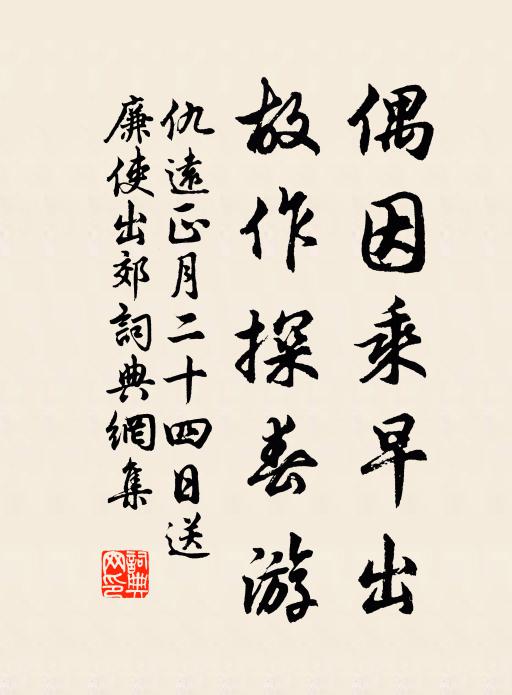 偶因乘早出
故作探春游
仇遠正月二十四日送
廉使出郊詞典網集
詞典網印